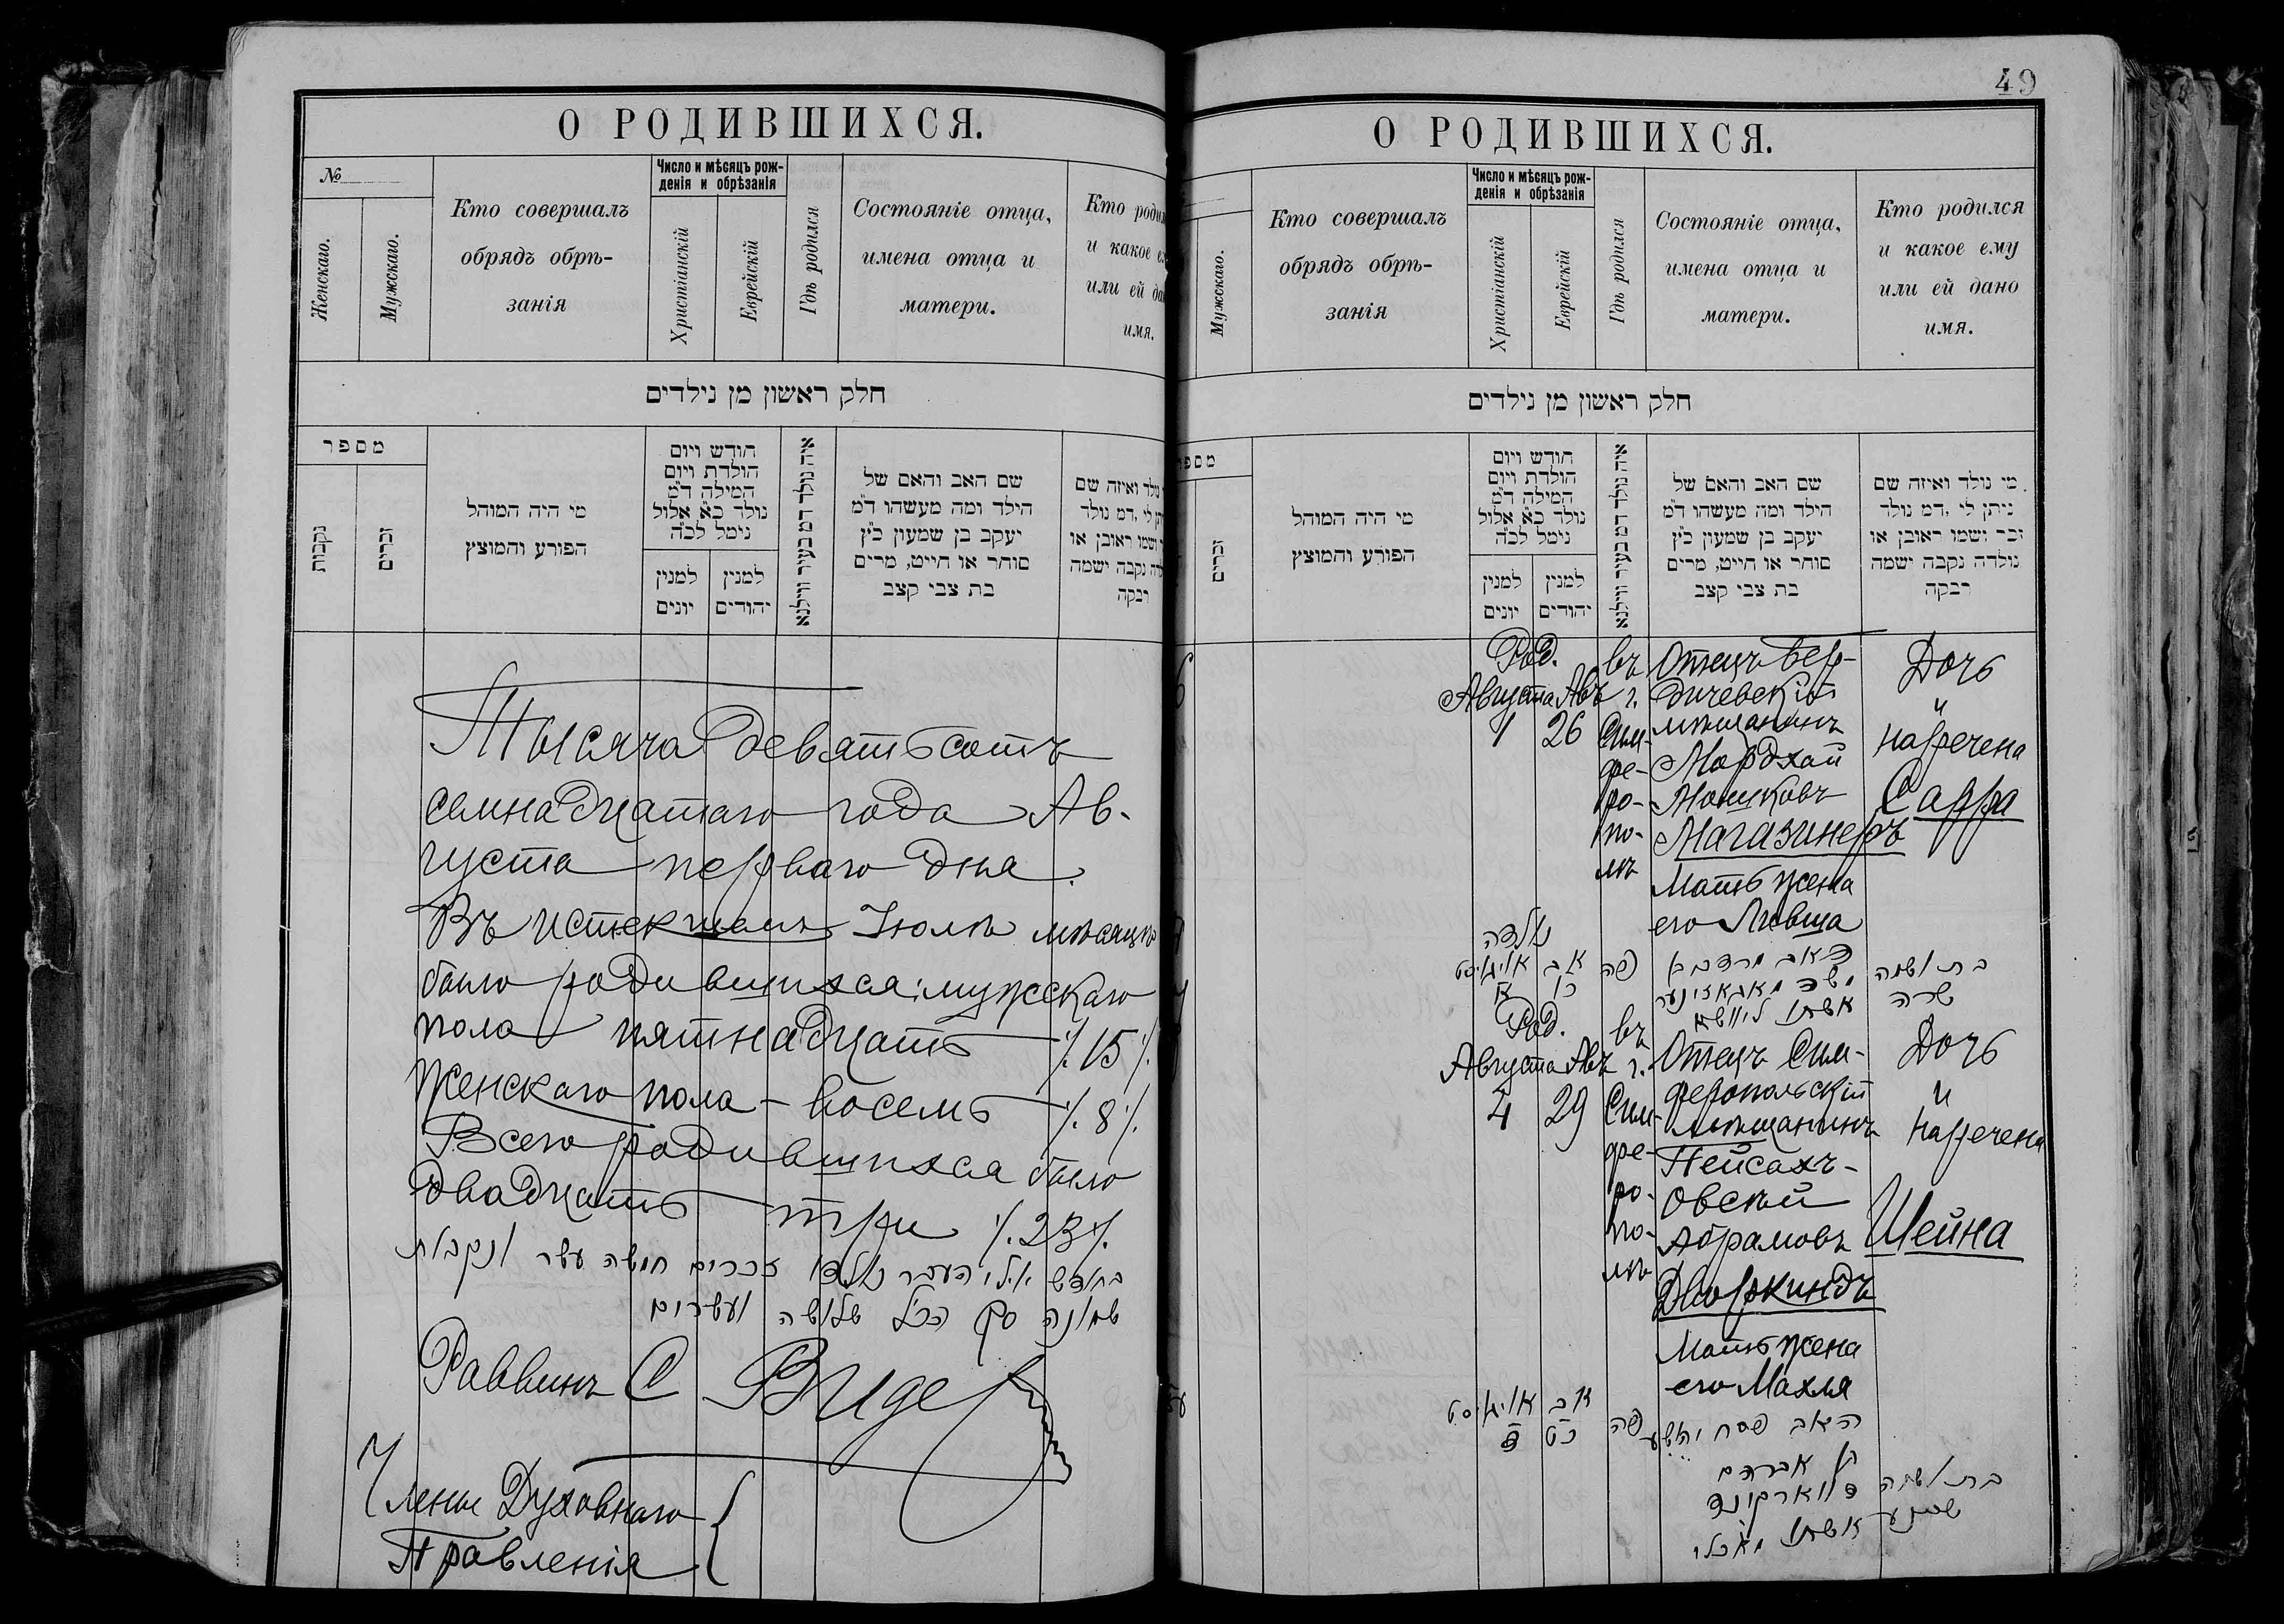 О РОДИВШИХСЯ.
№
Женскаго.
Мужскаго.
Кто совершалъ
обрядъ обрѣ-
занія
Число и мѣсяцъ рож-
денія и обрѣзанія
Христіанскій
Еврейскій
Гдѣ родился
Состояніе отца,
имена отца и
матери.
Кто
и какое
или ей
имя.
חלק ראשון מן נילדים
מספר
נקבות
זכרים
מי היה המוהל
הפורע והמוצץ
חודש ויום
הולדת ויום
המילה ד"מ
נולד כ"א אלול
נימל לכ"ה
למנין
יונים
למנין
יהודים
איה נולד דמ בעיר ווילנא
שם האב והאם של
הילד ומה מעשהו ד"מ
יעקב בן שמעון כ"ץ
סוחר או חייט, מרים
בת צבי קצב
נולד ואיזה שם
לי, דמ נולד
ושמו ראובן או
נקבה ישמה
רבקה
Тысяча девятьсотъ
семнадцатаго года Ав-
густа перваго дня.
Въ истекшемъ Іюлѣ мѣсяцѣ
было родившихся: мужскаго
пола пятнадцать ·/. 15 ·/.
женскаго пола – восемь ·/. 8 ·/.
Всего родившихся было
двадцать три ·/. 23 ·/.
בחודש יולי העבר נולדו זכרים חמשה עשר ונקבות
שמונה סך הכל שלושה ועשרים
Раввинъ С Видер
Члены Духовнаго
Правленія
49
О РОДИВШИХСЯ.
Мужскаго.
Кто совершалъ
обрядъ обрѣ-
занія
Число и мѣсяцъ рож-
денія и обрѣзанія
Христіанскій
Еврейскій
Гдѣ родился
Состояніе отца,
имена отца и
матери.
Кто родился
и какое ему
или ей дано
имя.
חלק ראשון מן נילדים
זכרים
מי היה המוהל
הפורע והמוצץ
חודש ויום
הולדת ויום
המילה ד"מ
נולד כ"א אלול
נימל לכ"ה
למנין
יונים
למנין
יהודים
איה נולד דמ בעיר ווילנא
שם האב והאם של
הילד ומה מעשהו ד"מ
יעקב בן שמעון כ"ץ
סוחר או חייט, מרים
בת צבי קצב
מי נולד ואיזה שם
ניתן לי, דמ נולד
זכר ושמו ראובן או
נולדה נקבה ישמה
רבקה
Род.
Августа Авъ
1 26
въ
г.
Сим-
фе-
ро-
по-
лѣ
Отецъ Бер-
дичевскій
мѣщанинъ
Мордхай
Мошковъ
Магазинеръ
Мать жена
его Лившa
Дочь
и
наречена
Сарра
נולדה
אויגוסט
א
אב
כו
פה
האב מרדכי ב
משה מאגאזינער
אשתו ליוושא
בת ושמה
שרה
Род.
Августа Авъ
4 29
въ
г.
Сим-
фе-
ро-
по-
лѣ
Отецъ Сим-
феропольскій
мѣщанинъ
Пейсахъ-
Овсѣй
Абрамовъ
Дворкиндъ
Мать жена
его Махля
Дочь
и
наречена
Шейна
אויגוסט
ד
אב
כט
פה
האב פסח יהושע
בן אברהם
דווארקינד
אשתו מאכלי
בת ושמה
שיינע